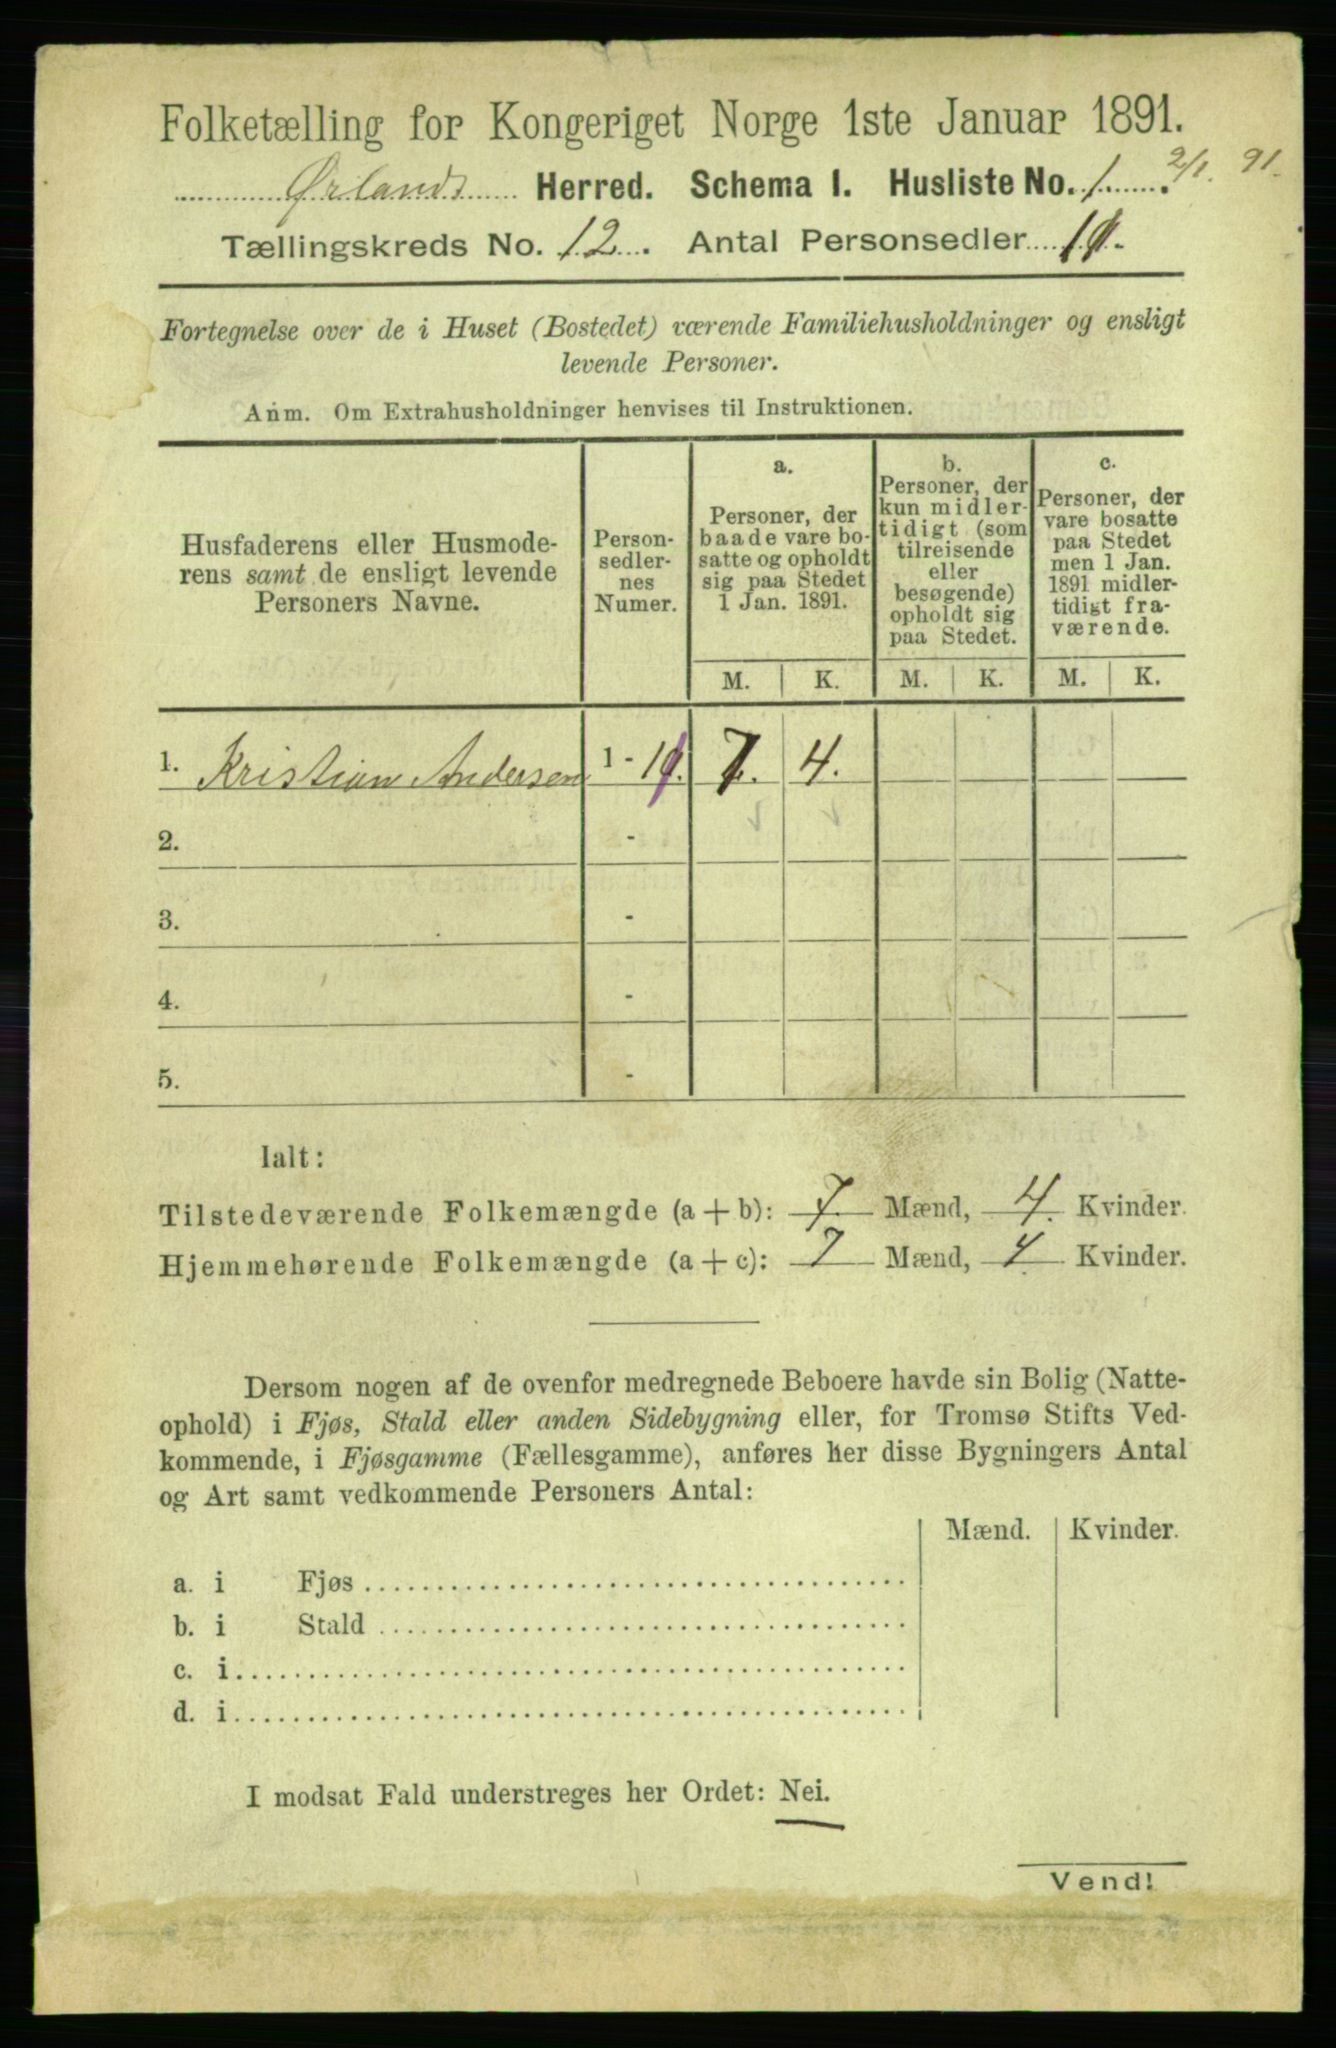 Folketælling for Kongeriget Norge 1ste Januar 1891.
Ørlands Herred. Schema 1. Husliste No. 1. 2/1. 91.
Tællingskreds No. 12. Antal Personsedler 11.
Fortegnelse over de i Huset (Bostedet) værende Familiehusholdninger og ensligt
levende Personer.
Anm. Om Extrahusholdninger henvises til Instruktionen.
Husfaderens eller Husmode-
rens samt de ensligt levende
Personers Navne.
Person-
sedler-
nes
Numer.
a.
Personer, der
baade vare bo-
satte og opholdt
sig paa Stedet
1 Jan. 1891.
b.
Personer, der
kun midler-
tidigt (som
tilreisende
eller
besøgende)
opholdt sig
paa Stedet.
c.
Personer, der
vare bosatte
paa Stedet
men 1 Jan.
1891 midler-
tidigt fra-
værende.
M. K. M. K. M. K.
1. Kristian Andersen 1 - 11. 7. 4.
2. -
3. -
4. -
5. -
Ialt:
Tilstedeværende Folkemængde (a + b): 7. Mænd, 4. Kvinder.
Hjemmehørende Folkemængde (a + c): 7 Mænd, 4 Kvinder.
Dersom nogen af de ovenfor medregnede Beboere havde sin Bolig (Natte-
ophold) i Fjøs, Stald eller anden Sidebygning eller, for Tromsø Stifts Ved-
kommende, i Fjøsgamme (Fællesgamme), anføres her disse Bygningers Antal
og Art samt vedkommende Personers Antal:
Mænd. Kvinder.
a. i Fjøs
b. i Stald
c. i
d. i
I modsat Fald understreges her Ordet: Nei.
Vend!